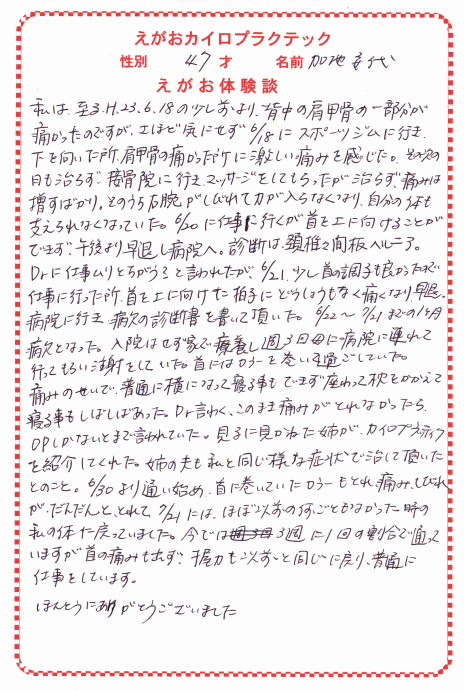 えがおカイロプラクテック
性別 47才 名前 加地 代
えがお体験談
私は、H.23.6.18の少し前より、背中の肩甲骨の一部分が
痛かったのですが、さほど気にせず6/18にスポーツジムに行き、
下を向いた所、肩甲骨の痛かった所に激しい痛みを感じた。その次の
日も治らず、接骨院に行き、マッサージをしてもらったが治らず、痛みは
増すばかり。そのうち右腕がしびれて力が入らなくなり、自分の体も
支えられなくなっていた。6/20に仕事に行くが首を上に向けることが
できず、午後より早退し病院へ。診断は、頚椎々間板ヘルニア。
Drに仕事ムリとちがう?と言われたが、6/21、少し首の調子も良かったので
仕事に行った所、首を上に向けた拍子にどうしようもなく痛くなり早退。
病院に行き、病欠の診断書を書いて頂いた。6/22〜7/21までの1ヶ月
病欠となった。入院はせず家で療養し週3日母に病院に連れて
行ってもらい注射をしていた。首にはカラーを巻いて過ごしていた。
痛みのせいで、普通に横になって寝る事もできず座って枕をかかえて
寝る事もしばしばあった。Dr言わく、このまま痛みがとれなかったら、
OPしかないとまで言われていた。見るに見かねた姉が、カイロプラティック
を紹介してくれた。姉の夫も私と同じ様な症状で治して頂いた
とのこと。6/30より通い始め、首に巻いていたカラーもとれ、痛み、しびれ
が、だんだんと、とれて、7/21には、ほぼ以前の何ごともなかった時の
私の体に戻っていました。今では3週に1回の割合で通って
いますが首の痛みも出ず、握力も以前と同じに戻り、普通に
仕事をしています。
ほんとうにありがとうございました